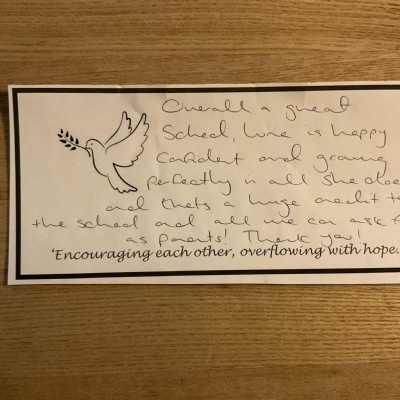 Overall a great
School, Lune is happy
Confident and growing
perfectly in all she does
and thats a huge credit to
the school and all we can ask f
as parents! Thank you!
'Encouraging each other, overflowing with hope.